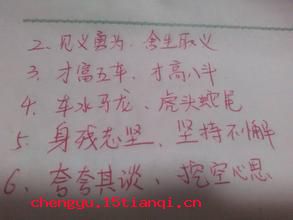 2. 见义勇为、舍生取义
3. 才富五车、才高八斗
4. 车水马龙、虎头蛇尾
5. 身残志坚、坚持不懈
6、夸夸其谈、挖空心思
chengyu.15tianqi.cn